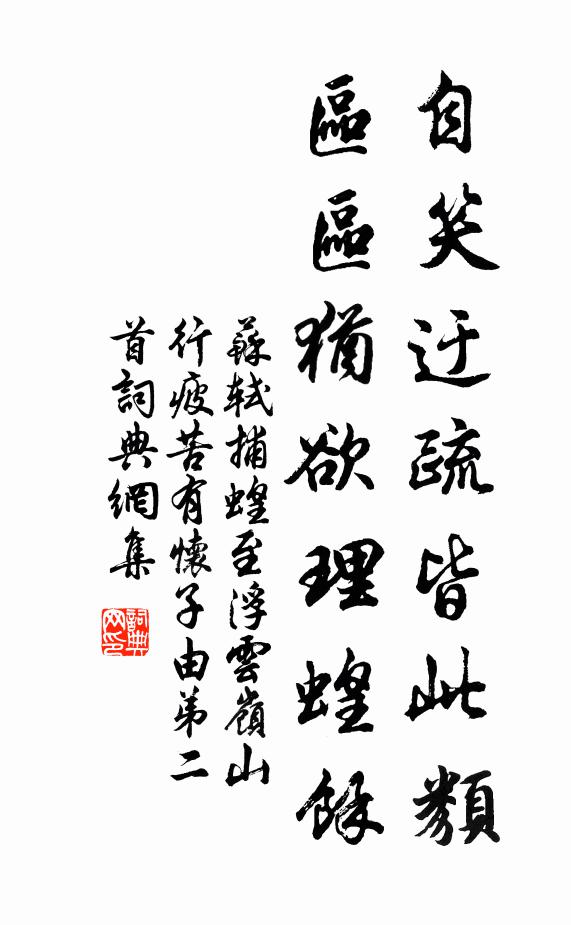 自笑迂疏皆此類
區區猶欲理蝗餘
蘇軾捕蝗至浮雲嶺山
行疲苶有懷子由弟二
首詞典網集
詞典
网印